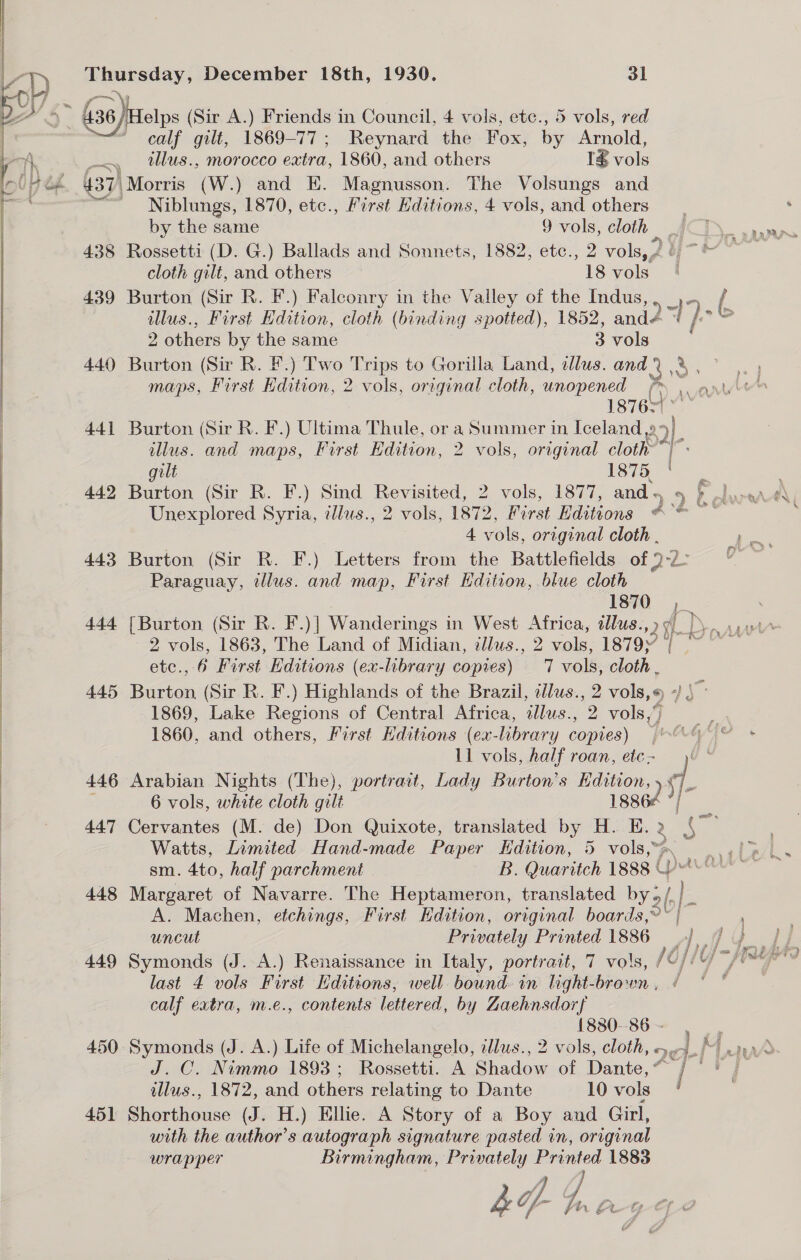 Thursday, December 18th, 1930. 31
436 Helps (Sir A.) Friends in Council, 4 vols, etc., 5 vols, red
calf gilt, 1869-77; Reynard the Fox, by Arnold,
illus., morocco extra, 1860, and others vols
437 Morris (W.) and E. Magnusson. The Volsungs and
Niblungs, 1870, etc., First Editions, 4 vols, and others
by the same 9 vols, cloth
438 Rossetti (D. G.) Ballads and Sonnets, 1882, etc., 2 vols,
cloth gilt, and others 18 vols
439 Burton (Sir R. F.) Falconry in the Valley of the Indus,
illus., First Edition, cloth (binding spotted), 1852, and
2 others by the same 3 vols
440 Burton (Sir R. F.) Two Trips to Gorilla Land, illus. and
maps, First Edition, 2 vols, original cloth, unopened
1876
441 Burton (Sir R. F.) Ultima Thule, or a Summer in Iceland,
illus. and maps, First Edition, 2 vols, original cloth
gilt 1875
442 Burton (Sir R. F.) Sind Revisited, 2 vols, 1877, and
Unexplored Syria, illus., 2 vols, 1872, First Editions
4 vols, original cloth
443 Burton (Sir R. F.) Letters from the Battlefields of
Paraguay, illus. and map, First Edition, blue cloth
1870
444 [Burton (Sir R. F.)] Wanderings in West Africa, illus.,
2 vols, 1863, The Land of Midian, illus., 2 vols, 1879,
etc., 6 First Editions (ex-library copies) 7 vols, cloth
445 Burton (Sir R. F.) Highlands of the Brazil, illus., 2 vols,
1869, Lake Regions of Central Africa, illus., 2 vols,
1860, and others, First Editions (ex-library copies)
11 vols, half roan, etc
446 Arabian Nights (The), portrait, Lady Burton's Edition,
6 vols, white cloth gilt 1886
447 Cervantes (M. de) Don Quixote, translated by H. E.
Watts, Limited Hand-made Paper Edition, 5 vols,
sm. 4to, half parchment B. Quaritch 1888
448 Margaret of Navarre. The Heptameron, translated by
A. Machen, etchings, First Edition, original boards,
uncut Privately Printed 1886
449 Symonds (J. A.) Renaissance in Italy, portrait, 7 vols,
last 4 vols First Editions, well bound in light-brown
calf extra, m.e., contents lettered, by Zaehnsdorf
1880-86
450 Symonds (J. A.) Life of Michelangelo, illus., 2 vols, cloth,
J. C. Nimmo 1893; Rossetti. A Shadow of Dante,
illus., 1872, and others relating to Dante 10 vols
451 Shorthouse (J. H.) Ellie. A Story of a Boy and Girl,
with the author's autograph signature pasted in, original
wrapper Birmingham, Privately Printed 1883